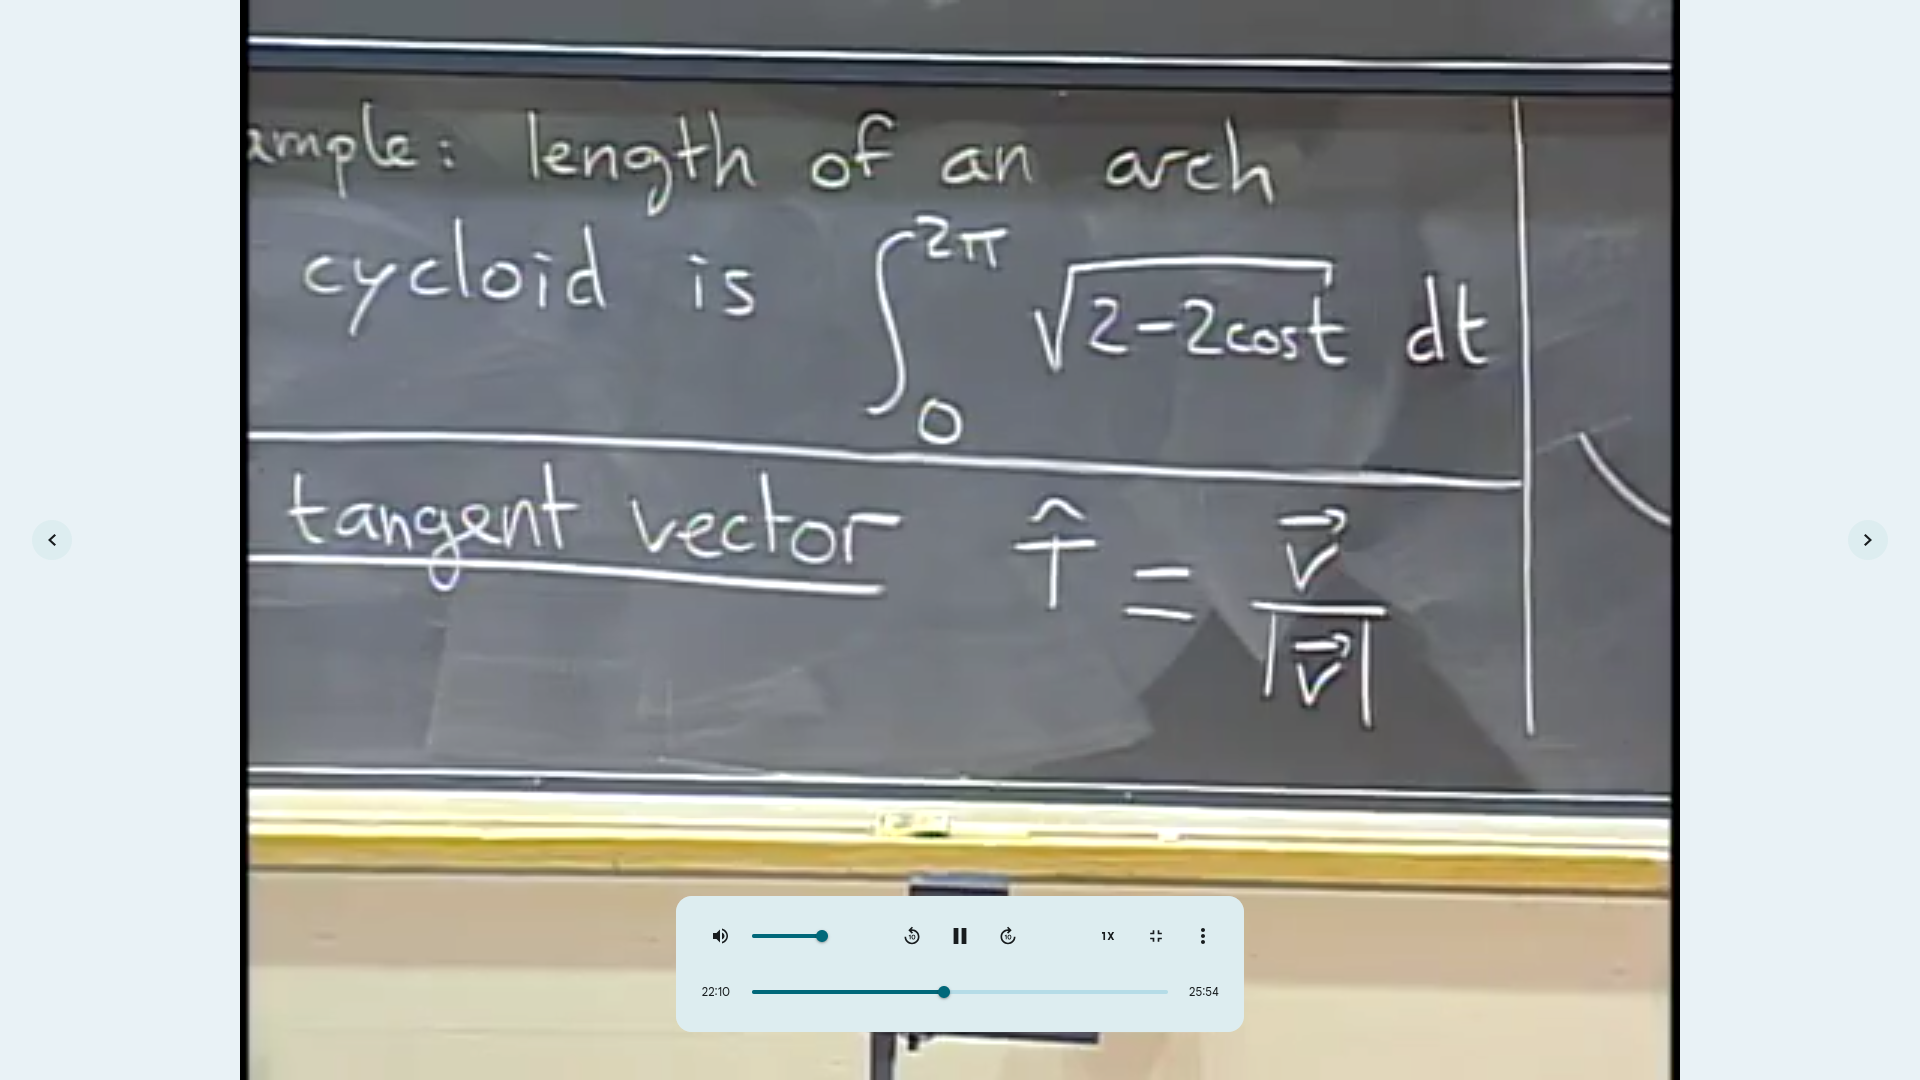 ample: length of an arch
cycloid is ∫₀^2π √(2-2cost) dt
tangent vector T̂ = v⃗ / |v⃗|
10 10 1X
22:10 25:54